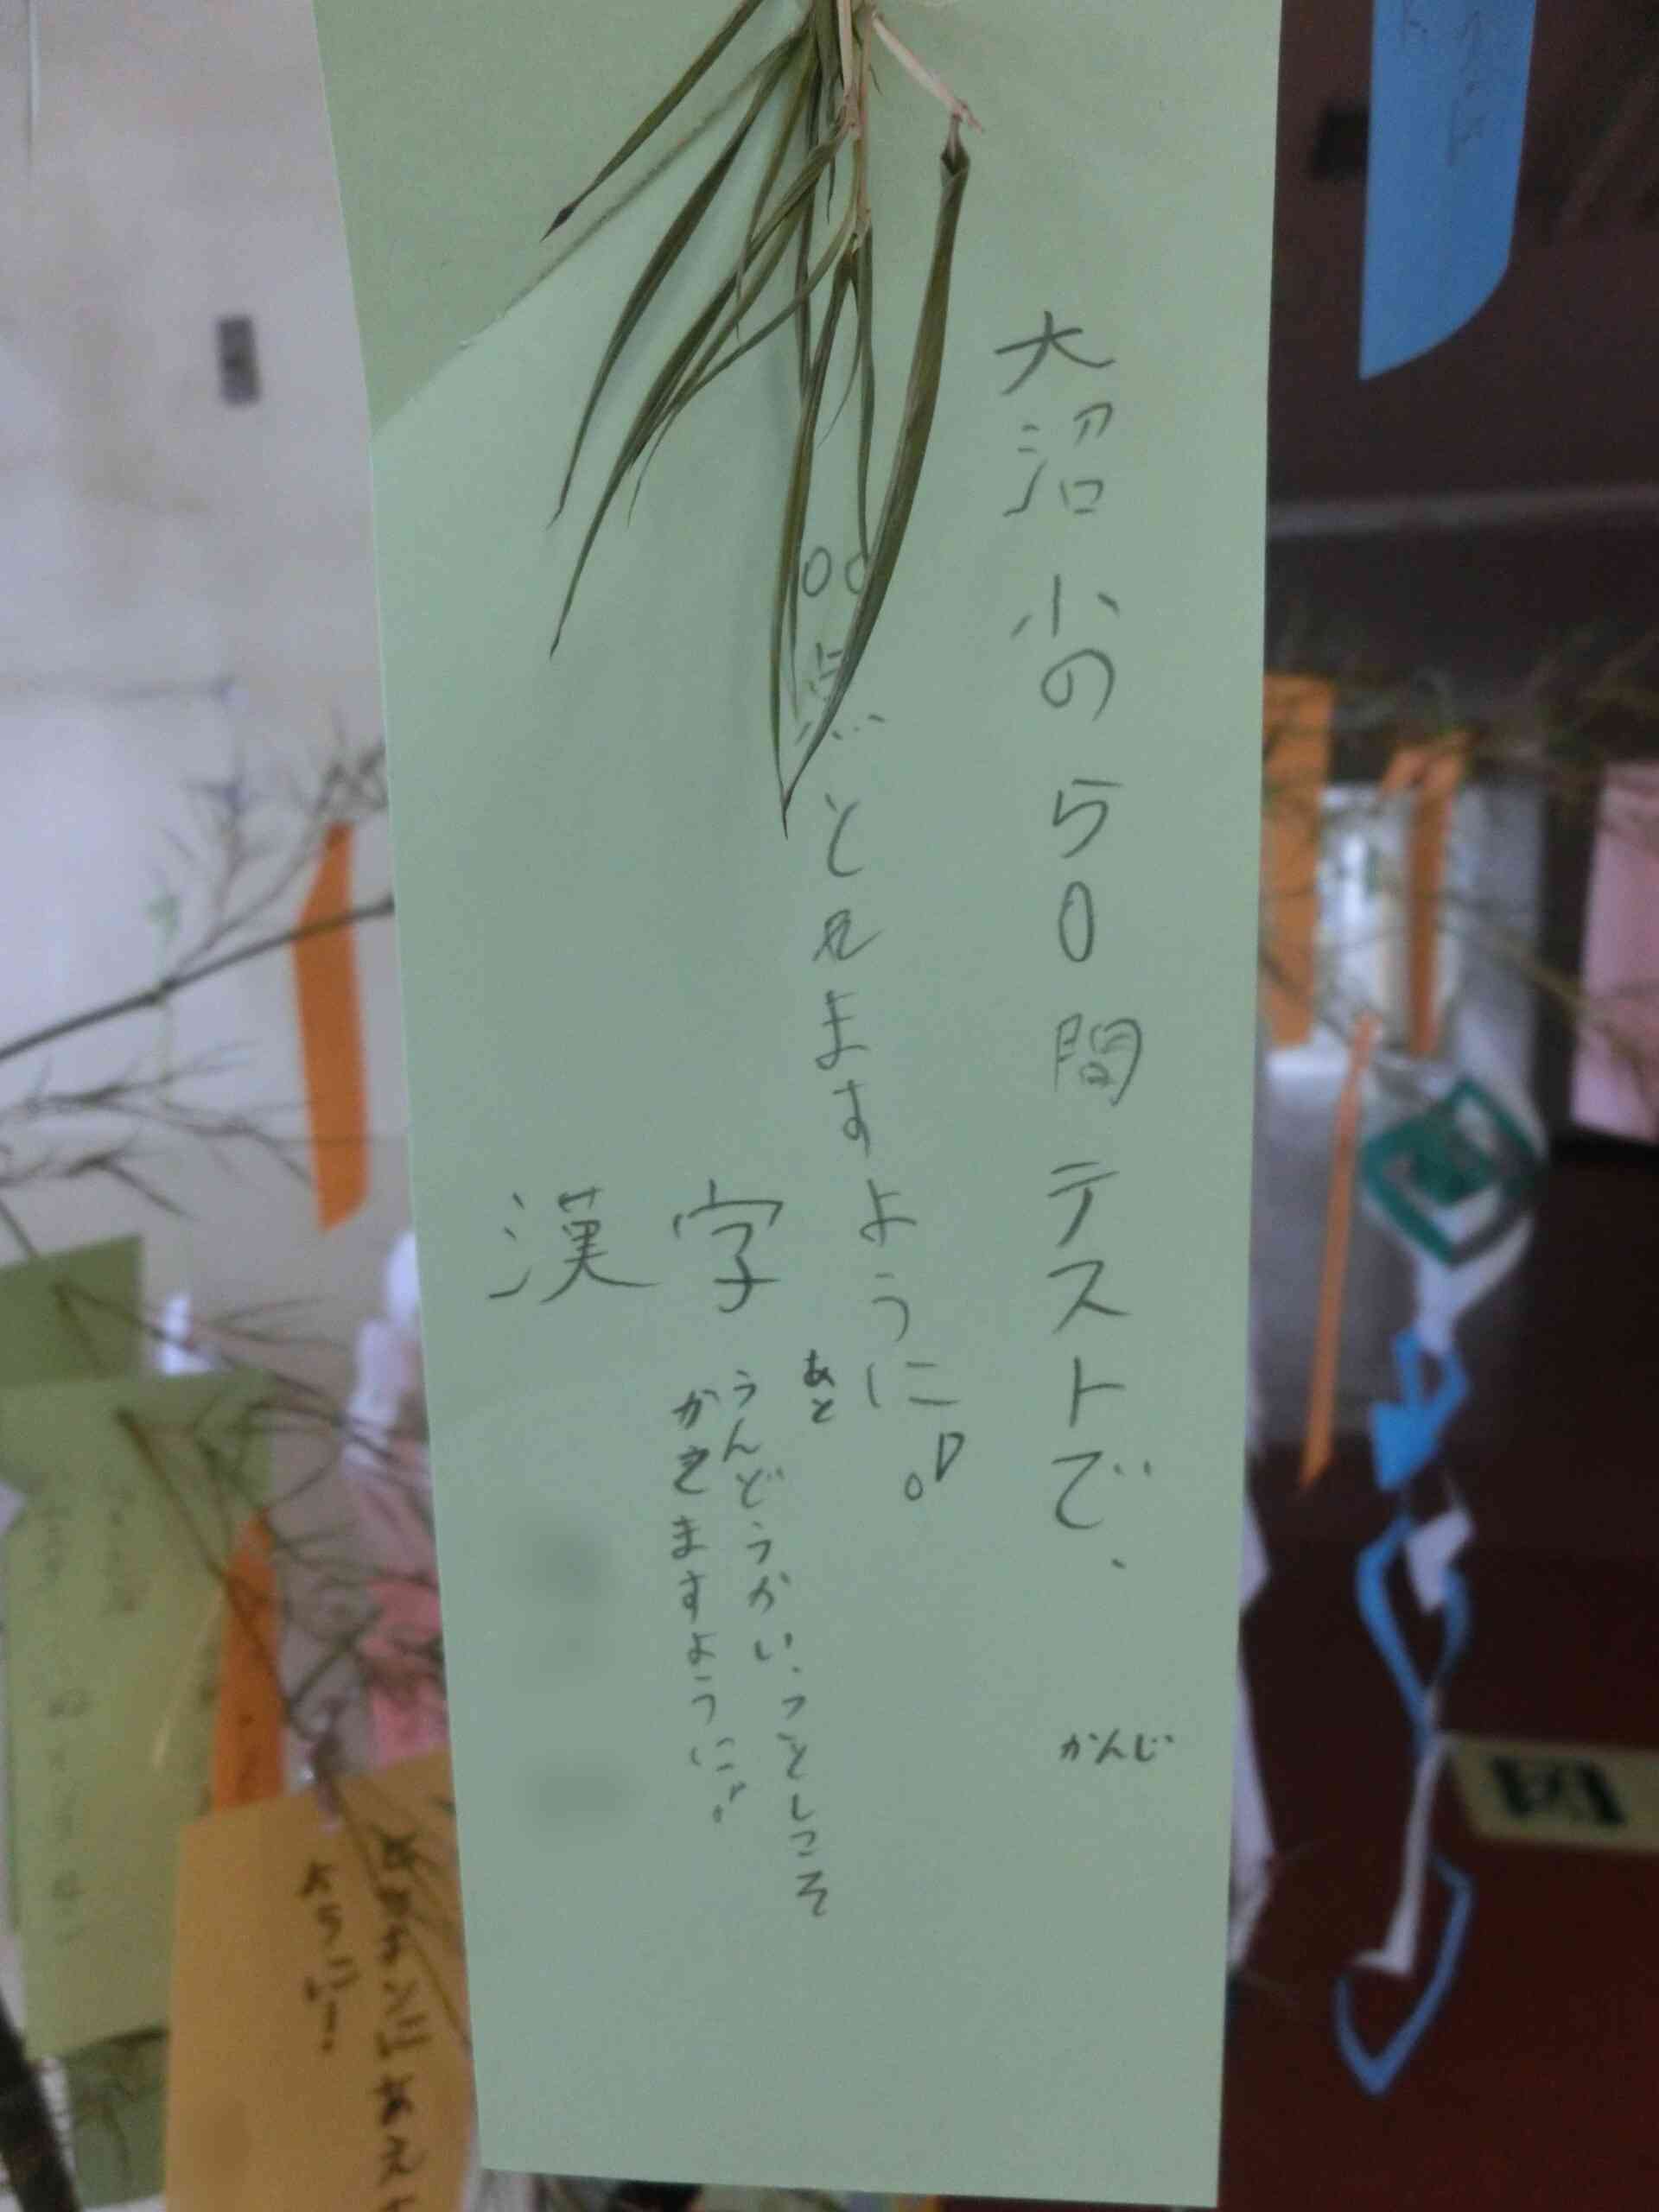 大沼小の50問テストで、
かんじ
00点とれますように♪
漢字
あと
うんどうかい、ことしこそ
かてますように♪
ように!